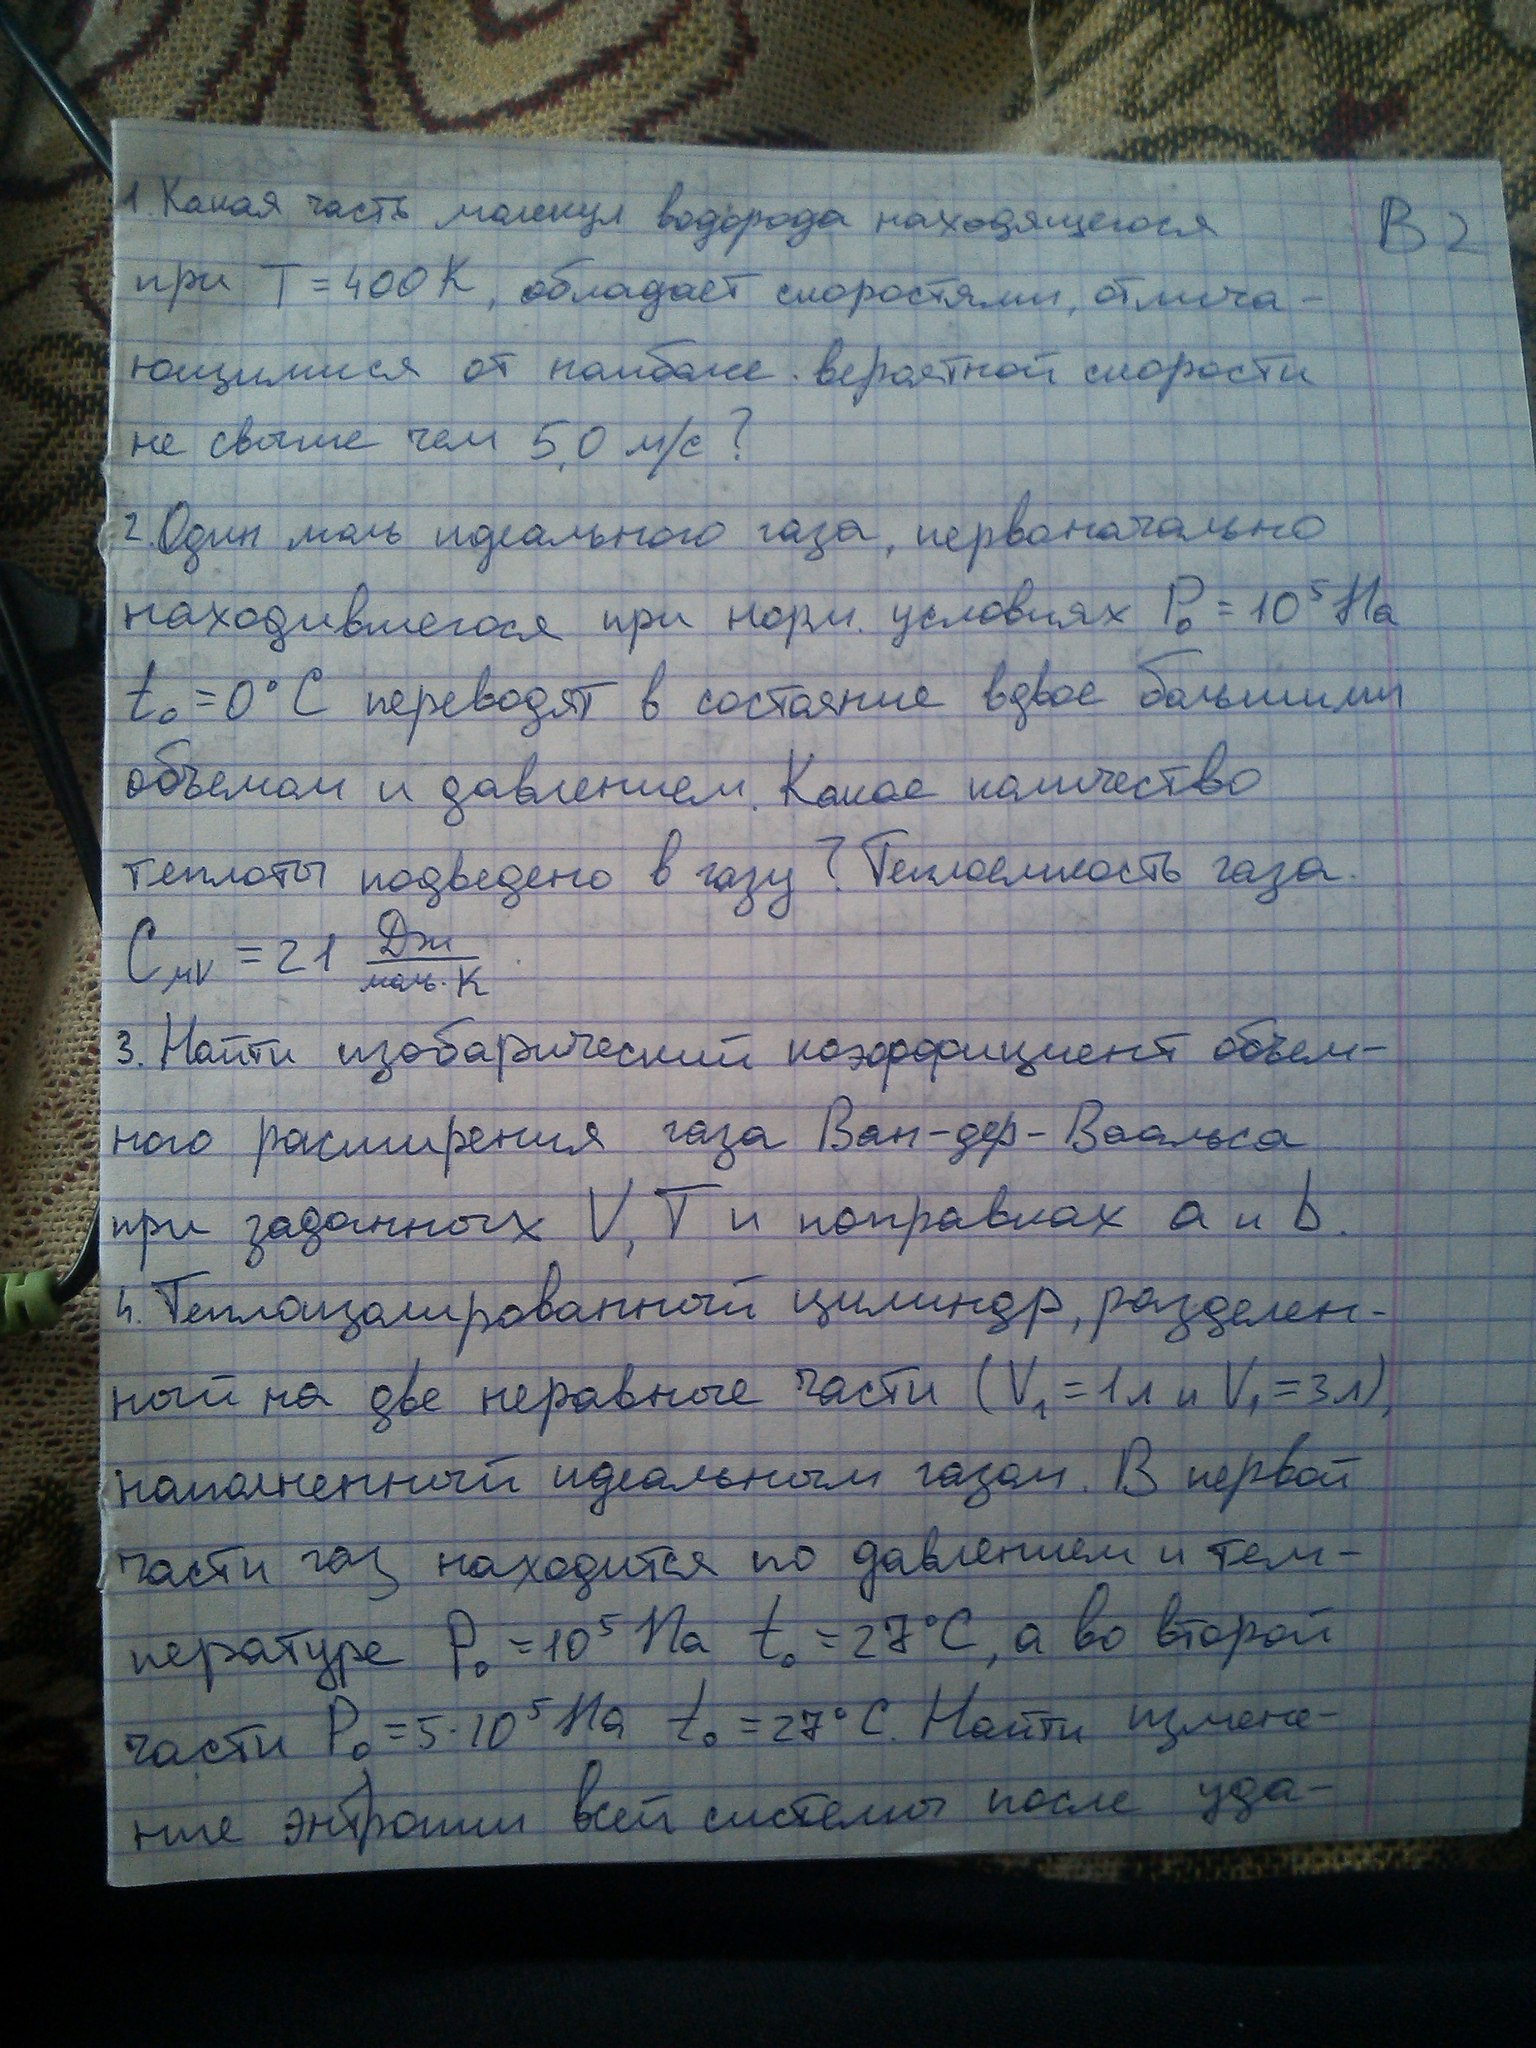 1. Какая часть молекул водорода находящегося
В 2
при T = 400 K, обладает скоростями, отлича-
ющимися от наиболее вероятной скорости
не свыше чем 5,0 м/с?
2. Один моль идеального газа, первоначально
находившегося при норм. условиях P₀ = 10⁵ Па
t₀ = 0°C переводят в состояние вдвое большими
объемом и давлением. Какое количество
теплоты подведено в газу? Теплоемкость газа.
C_μV = 21 Дж/моль·К
3. Найти изобарический коэффициент объем-
ного расширения газа Ван-дер-Ваальса
при заданных V, T и поправках a и b.
4. Теплоизолированный цилиндр, разделен-
ный на две неравные части (V₁ = 1л и V₁ = 3л),
наполненный идеальным газом. В первой
части газ находится по давлением и тем-
пературе P₀ = 10⁵ Па t₀ = 27°C, а во второй
части P₀ = 5·10⁵ Па t₀ = 27°C. Найти измене-
ние энтропии всей системы после уда-